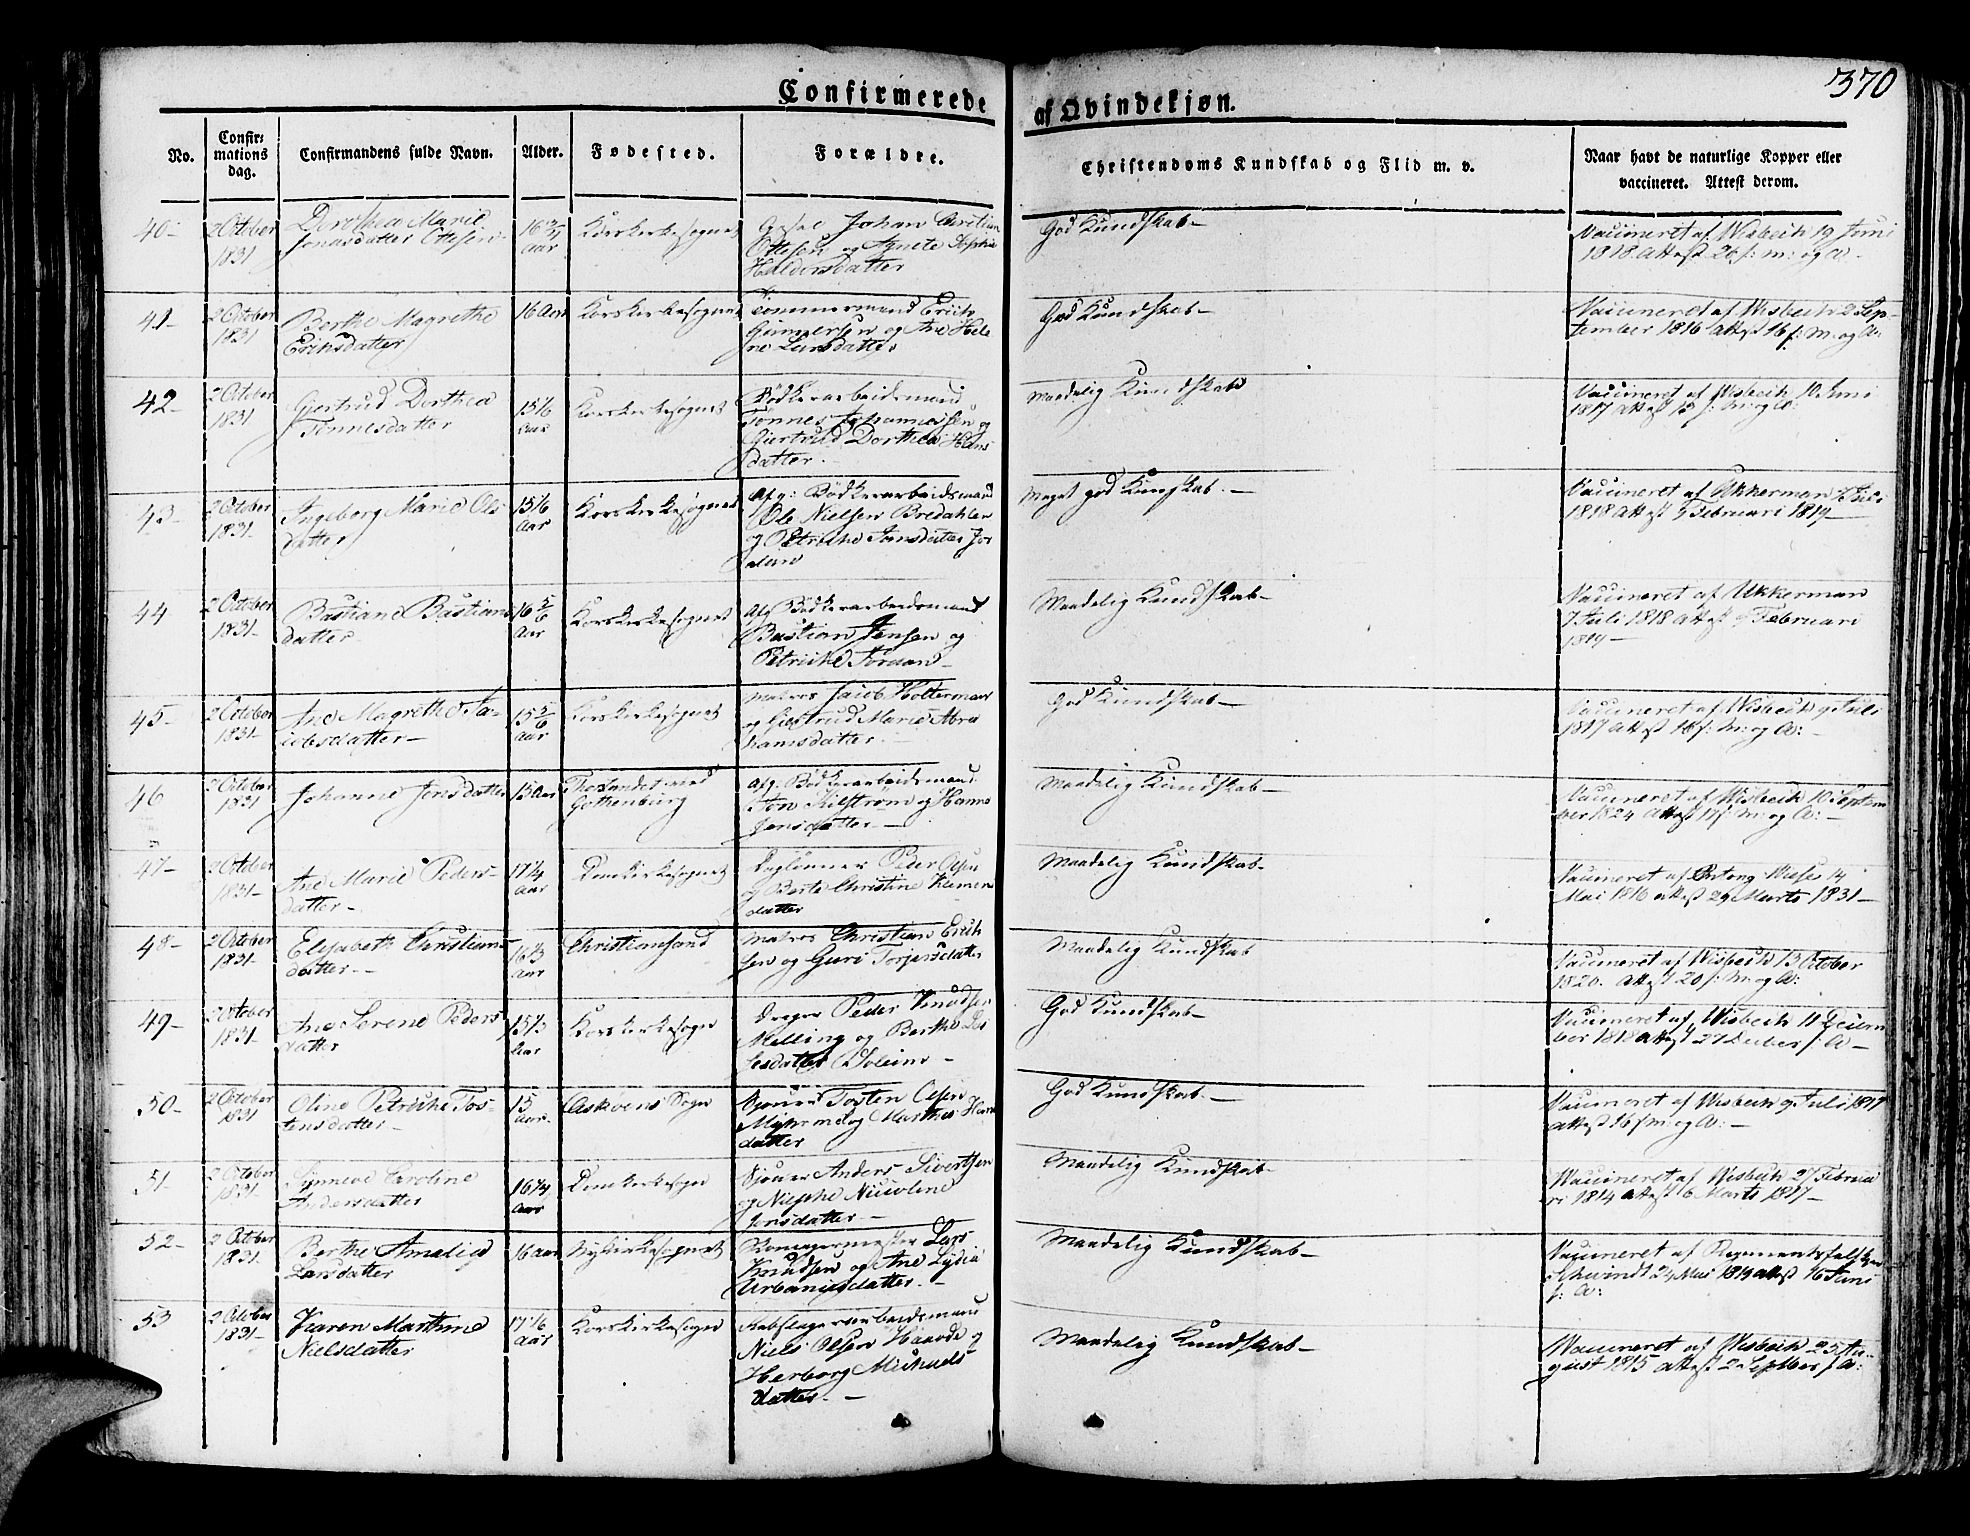 370
Confirmerede af Qvindekjøn.
No.
Confir-
mations
dag.
Confirmandens fulde Navn.
Alder.
Fødested.
Forældre.
Christendoms Kundskab og Flid m. v.
Naar havt de naturlige Kopper eller
vaccineret. Attest derom.
40-
2 October
1831
Dorothea Marie
Jonasdatter Ottesen
16 3/4
Aar
Korskirkesognet
Johan Christian
Ottesen og Agnete Sophia
Haldorsdatter
God Kundskab-
Vaccineret af Wisbech 19 Juni
1818 Attest 26 f: m: og A-
41-
2 October
1831
Berthe Magrethe
Erichsdatter
16 Aar
Korskirkesognet
Tømmermand Erich
Gunnersen og Ane Hele
ne Larsdatter
God Kundskab-
Vaccineret af Wisbech 2 Sep-
tember 1816 Attest 16 f: M: og A:
42-
2 October
1831
Giertrud Dorthea
Tønnesdatter
15 1/6
Aar
Korskirkesognet
Bødkerarbeidsmand
Tønnes Johannessen og
Giertrud Dorthea Hans
datter-
Maadelig Kundskab
Vaccineret af Wisbech 10 Juni
1817 Attest 15 f: M: og A:
43-
2 October
1831-
Ingeborg Marie Ols
datter
15 1/6
Aar
Korskirkesognet
Afg: Bødkerarbeidsmand
Ole Nielsen Bredahlen
og Petriche Jonsdatter Jor
dan
Meget god Kundskab.-
Vaccineret af Ukkerman 7 Juli
1818 Attest 9 Februari 1819-
44
2 October
1831-
Bastiane Bastians
datter
16 5/6
Aar
Korskirkesognet
Afg Bødkerarbeidsmand
Bastian Jensen og
Petriche Jordan-
Maadelig Kundskab-
Vaccineret af Ukkerman
7 Juli 1818 Attest 9 Februari
1819-
45-
2 October
1831-
Ane Magrethe Ja-
cobsdatter-
15 5/6
Aar
Korskirkesognet
Matros Jacob Holterman
og Giertrud Marie Abra
hamsdatter-
God Kundskab-
Vaccineret af Wisbech 9 Juli
1817 Attest 16 f: M: og A:
46
2 October
1831
Johanne Jonsdatter
15 Aar
Gothenburg
Afg. Bødkerarbeidsmand
Jon Kilstrøm og Hanna
Jonsdatter-
Maadelig Kundskab-
Vaccineret af Wisbech 10 Septem
ber 1824 Attest 17 f: M: og A:-
47-
2 October
1831-
Ane Marie Peders-
datter-
17 1/4
Aar
Domkirkesognet
Daglønner Peder Olsen
og Berte Christine Klemen
datter
Maadelig Kundskab-
Vaccineret af Wiese 14
Mai 1816 Attest 29 Marts 1831-
48-
2 October
1831-
Elisabeth Christians-
datter-
16 1/3
Aar
Christiansand
Matros Christian Erich
sen og Guri Torjersdatter
Maadelig Kundskab
Vaccineret af Wisbech 13 October
1820. Attest 20 f: M: og A:
49-
2 October
1831-
Ane Serene Peders
datter
15 1/3
Aar
Korskirkesogn
Drager Peder Knudsen
Melling og Berthe La
rsdatter
God Kundskab-
Vaccineret af Wisbech 11 Decem
ber 1818 Attest 27 Decber f: A-
50-
2 October
1831
Oline Petriche Tos-
tensdatter-
15
Aar-
Askøens Sogn
Sjouer Tosten Olsen
Myhrene og Marthe Hans
datter
God Kundskab.-
Vaccineret af Wisbech 9 Juli 1817
Attest 16 f M: og A:-
51-
2 October
1831-
Synneve Caroline
Andersdatter
16 1/4
Aar
Domkirkesogn
Sjouer Anders Sivertsen
og Nicoline
Jensdatter-
Maadelig Kundskab-
Vaccineret af Wisbech 27 Februa
ri 1814 Attest 6 Marts 1817-
52-
2 October
1831-
Berthe Amalia
Larsdatter
16 Aar
Nykirkesognet
Skomagermester Lars
Knudsen og Ane Lydia
Urbanusdatter.-
Maadelig Kundskab-
Vaccineret af Regimentsfeltskjær
Schwindt 24 Mai 1819 Attest 16 Juni
f: A:
53
2 October
1831-
Karen Marthine
Nielsdatter
17 1/6
Aar
Korskirkesogn
Rebslagerarbeidsmand
Niels Olsen Haavde og
Herborg Michaels
datter.-
Maadelig Kundskab-
Vaccineret af Wisbech 25 Au-
gust 1815 Attest 2 Septber f A: